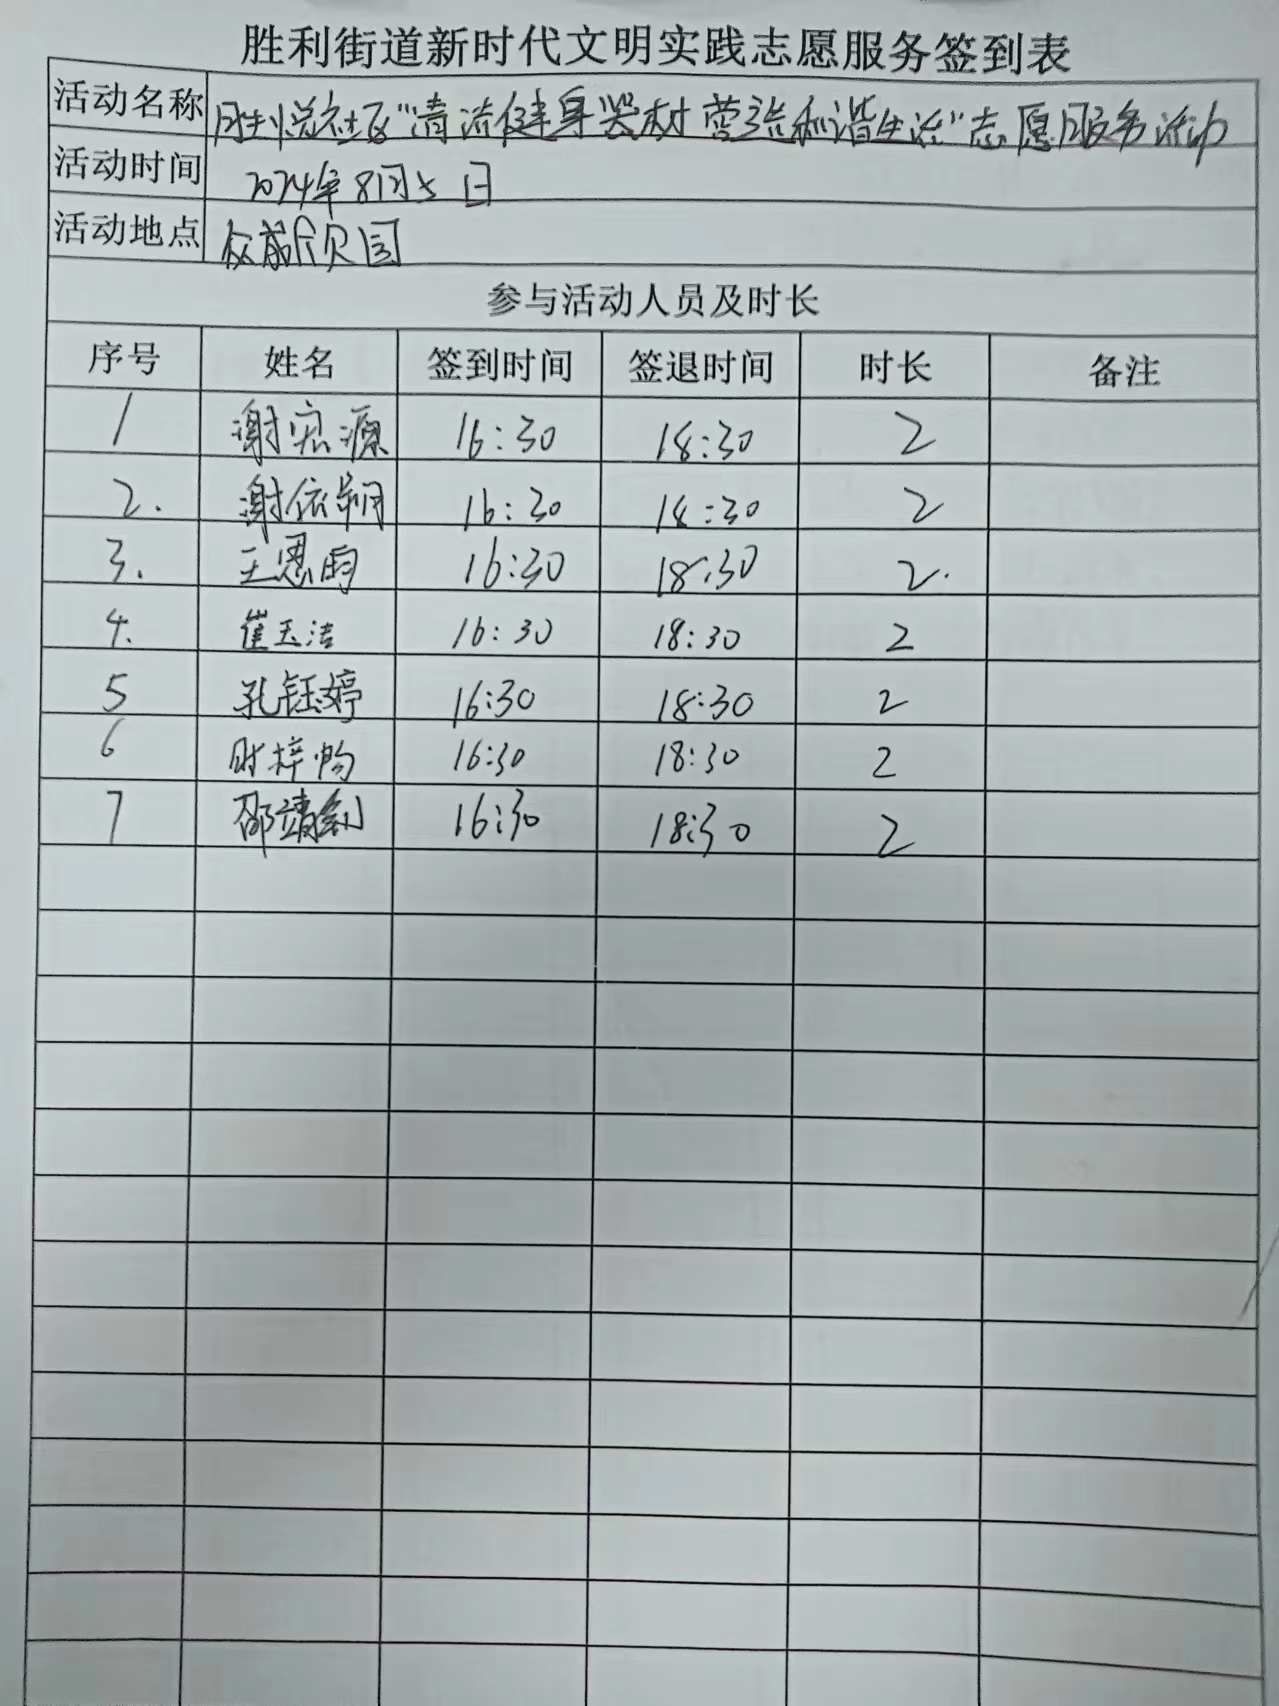 胜利街道新时代文明实践志愿服务签到表
活动名称 胜悦社区“清洁健身器材 营造和谐生活”志愿服务活动
活动时间 2024年8月5日
活动地点
参与活动人员及时长
序号 姓名 签到时间 签退时间 时长 备注
1 谢宏源 16:30 18:30 2
2. 谢依朔 16:30 18:30 2
3. 王恩雨 16:30 18:30 2.
4. 崔玉洁 16:30 18:30 2
5 孔钰婷 16:30 18:30 2
6 时梓畅 16:30 18:30 2
7 邵靖 16:30 18:30 2